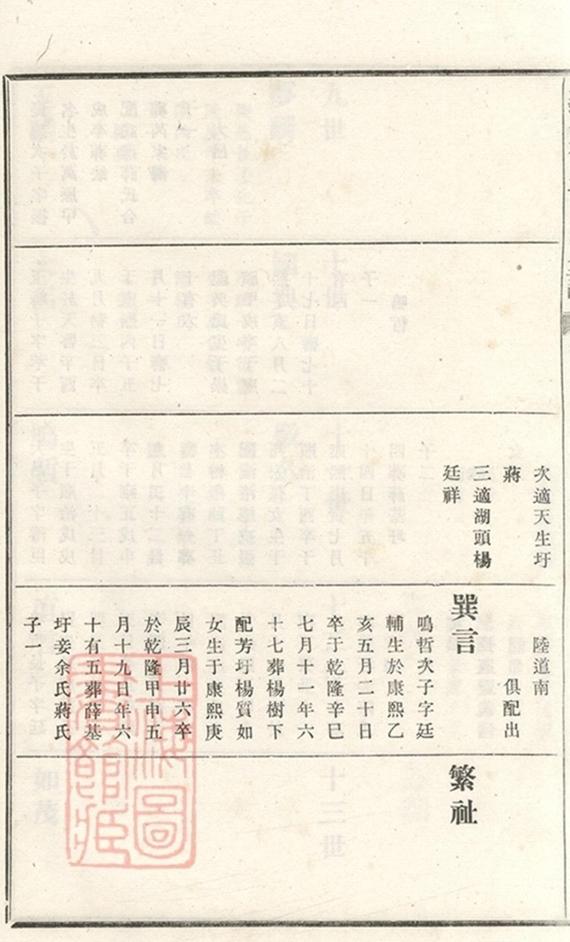 次適天生圩
蔣
三適湖頭楊
廷祥
陸道南
俱配出
巽言
鳴哲次子字廷
輔生於康熙乙
亥五月二十日
卒于乾隆辛巳
七月十一年六
十七葬楊樹下
配芳圩楊質如
女生于康熙庚
辰三月廿六卒
於乾隆甲申五
月十九日年六
十有五葬薛基
圩妾余氏蔣氏
子一
繁祉
上海圖
書館藏